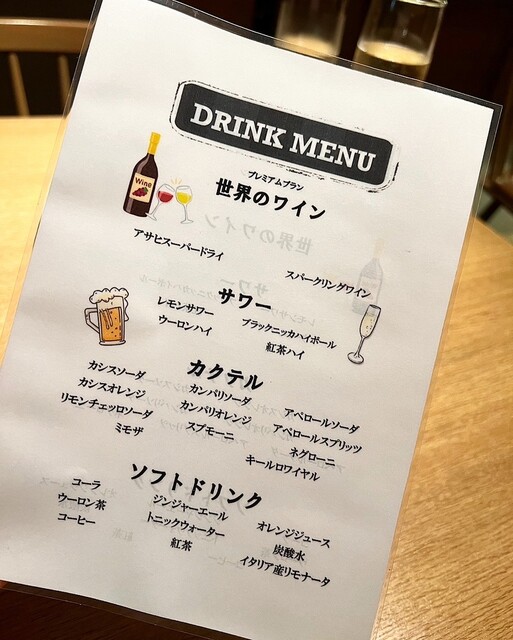 DRINK MENU
プレミアムプラン
世界のワイン
Wine
アサヒスーパードライ
スパークリングワイン
サワー
レモンサワー
ブラックニッカハイボール
ウーロンハイ
紅茶ハイ
カクテル
カシスソーダ
カンパリソーダ
アペロールソーダ
カシスオレンジ
カンパリオレンジ
アペロールスプリッツ
リモンチェッロソーダ
スプモーニ
ネグローニ
ミモザ
キールロワイヤル
ソフトドリンク
コーラ
ジンジャーエール
オレンジジュース
ウーロン茶
トニックウォーター
炭酸水
コーヒー
紅茶
イタリア産リモナータ